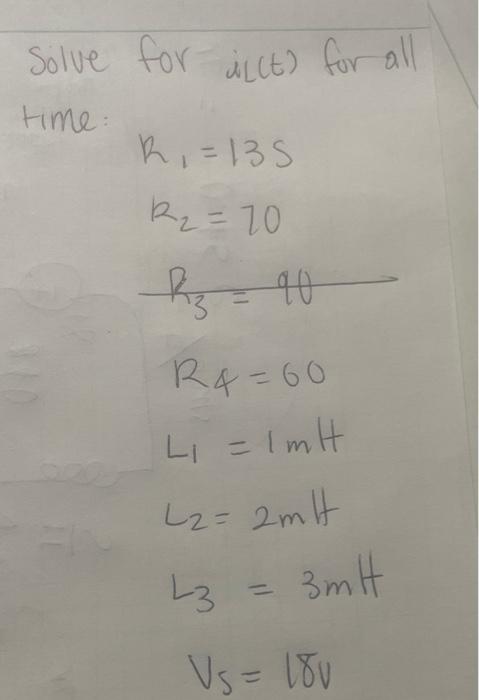 Solve for iL(t) for all
time:
R1 = 135
R2 = 70
R3 = 90
R4 = 60
L1 = 1mH
L2 = 2mH
L3 = 3mH
Vs = 18v